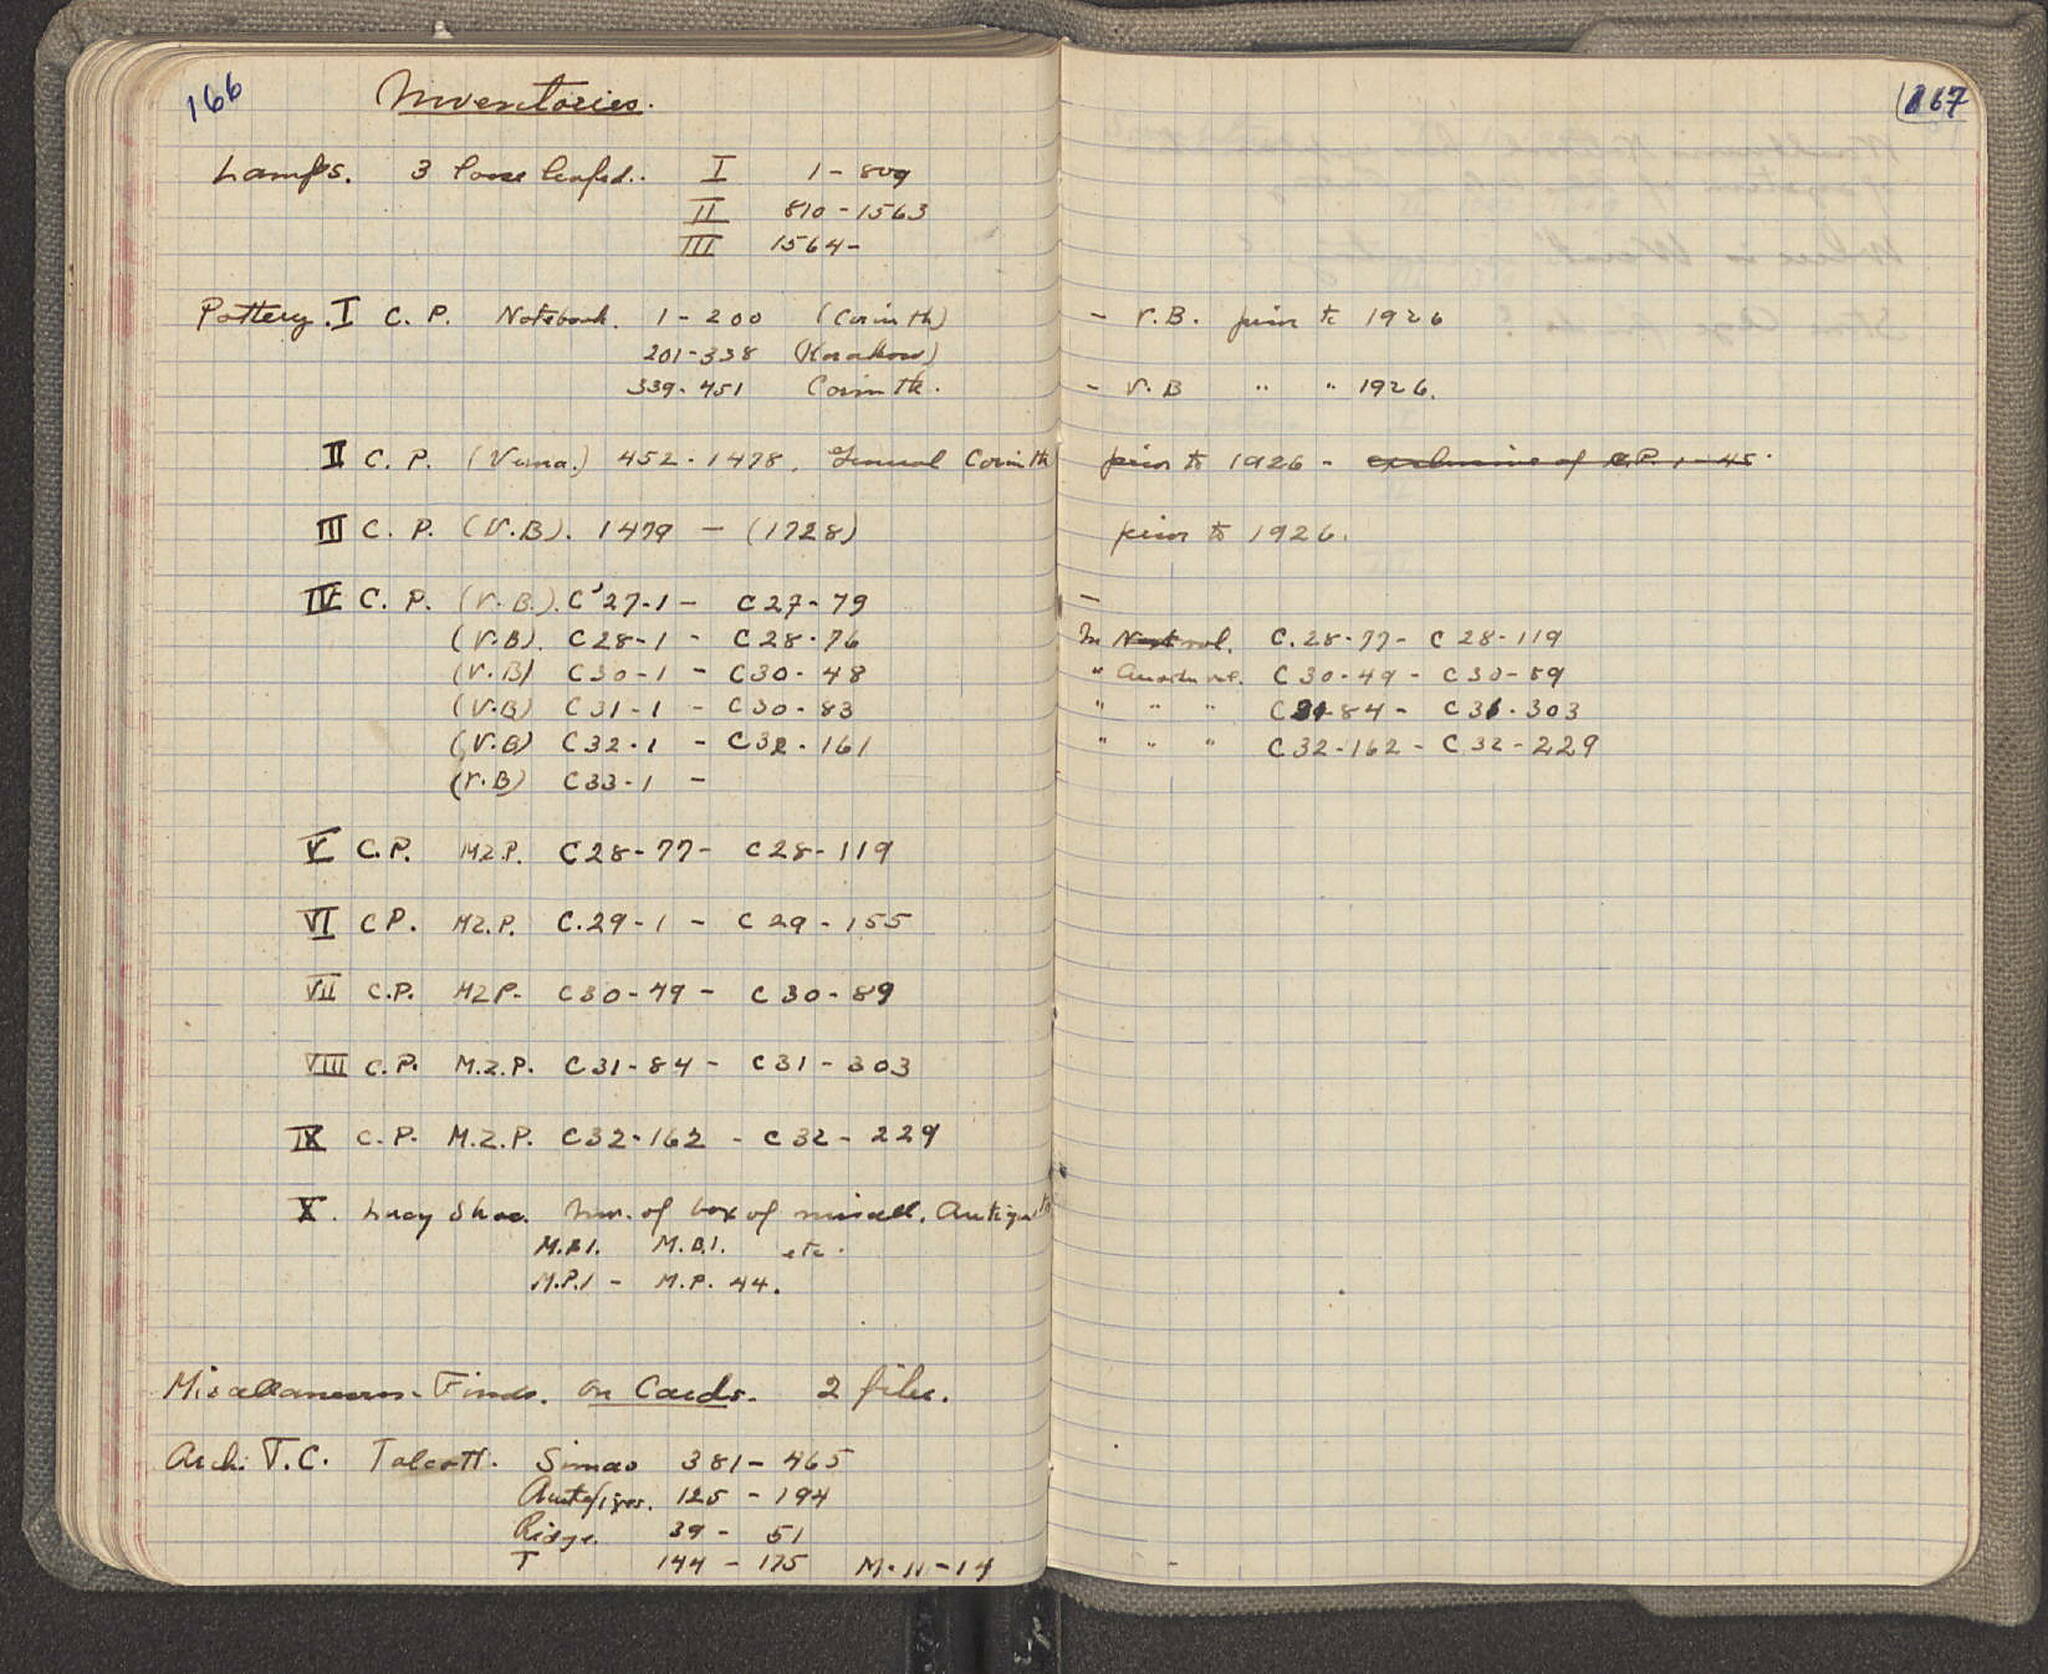 166
Inventories.
Lamps. 3 loose leafed.. I 1-809
II 810-1563
III 1564-
Pottery. I C. P. Notebook. 1-200 (Corinth)
201-338 (Korakou)
339-451 Corinth.
II C. P. (Verna.) 452-1478. General Corinth
III C. P. (V.B). 1479 - (1728)
IV C. P. (V.B.). C'27-1 - C27-79
(V.B). C28-1 - C28-76
(V.B) C30-1 - C30-48
(V.B) C31-1 - C30-83
(V.B) C32-1 - C32-161
(V.B) C33-1 -
V C.P. MZ.P. C28-77- C28-119
VI C P. MZ.P. C.29-1 - C29-155
VII C.P. MZP. C30-49 - C30-89
VIII C.P. M.Z.P. C31-84 - C31-303
IX C.P. M.Z.P. C32-162 - C32-229
X. Lucy Shoe. Inv. of box of miscell. Antiquit
M.B1. M.B.1. etc.
M.P.1 - M.P. 44.
Miscellaneous-Finds. on Cards. 2 files.
Arch. T.C. Talcott. Simas 381-465
Antefixes. 125-194
Ridge. 39-51
T 144-175 M-11-14
167
- V.B. prior to 1926
- V.B " " 1926.
prior to 1926 - exclusive of C.P. 1-45.
prior to 1926.
-
In Next vol. C.28-77- C28-119
" Another vol. C30-49 - C30-89
" " " C31-84 - C31-303
" " " C32-162 - C32-229